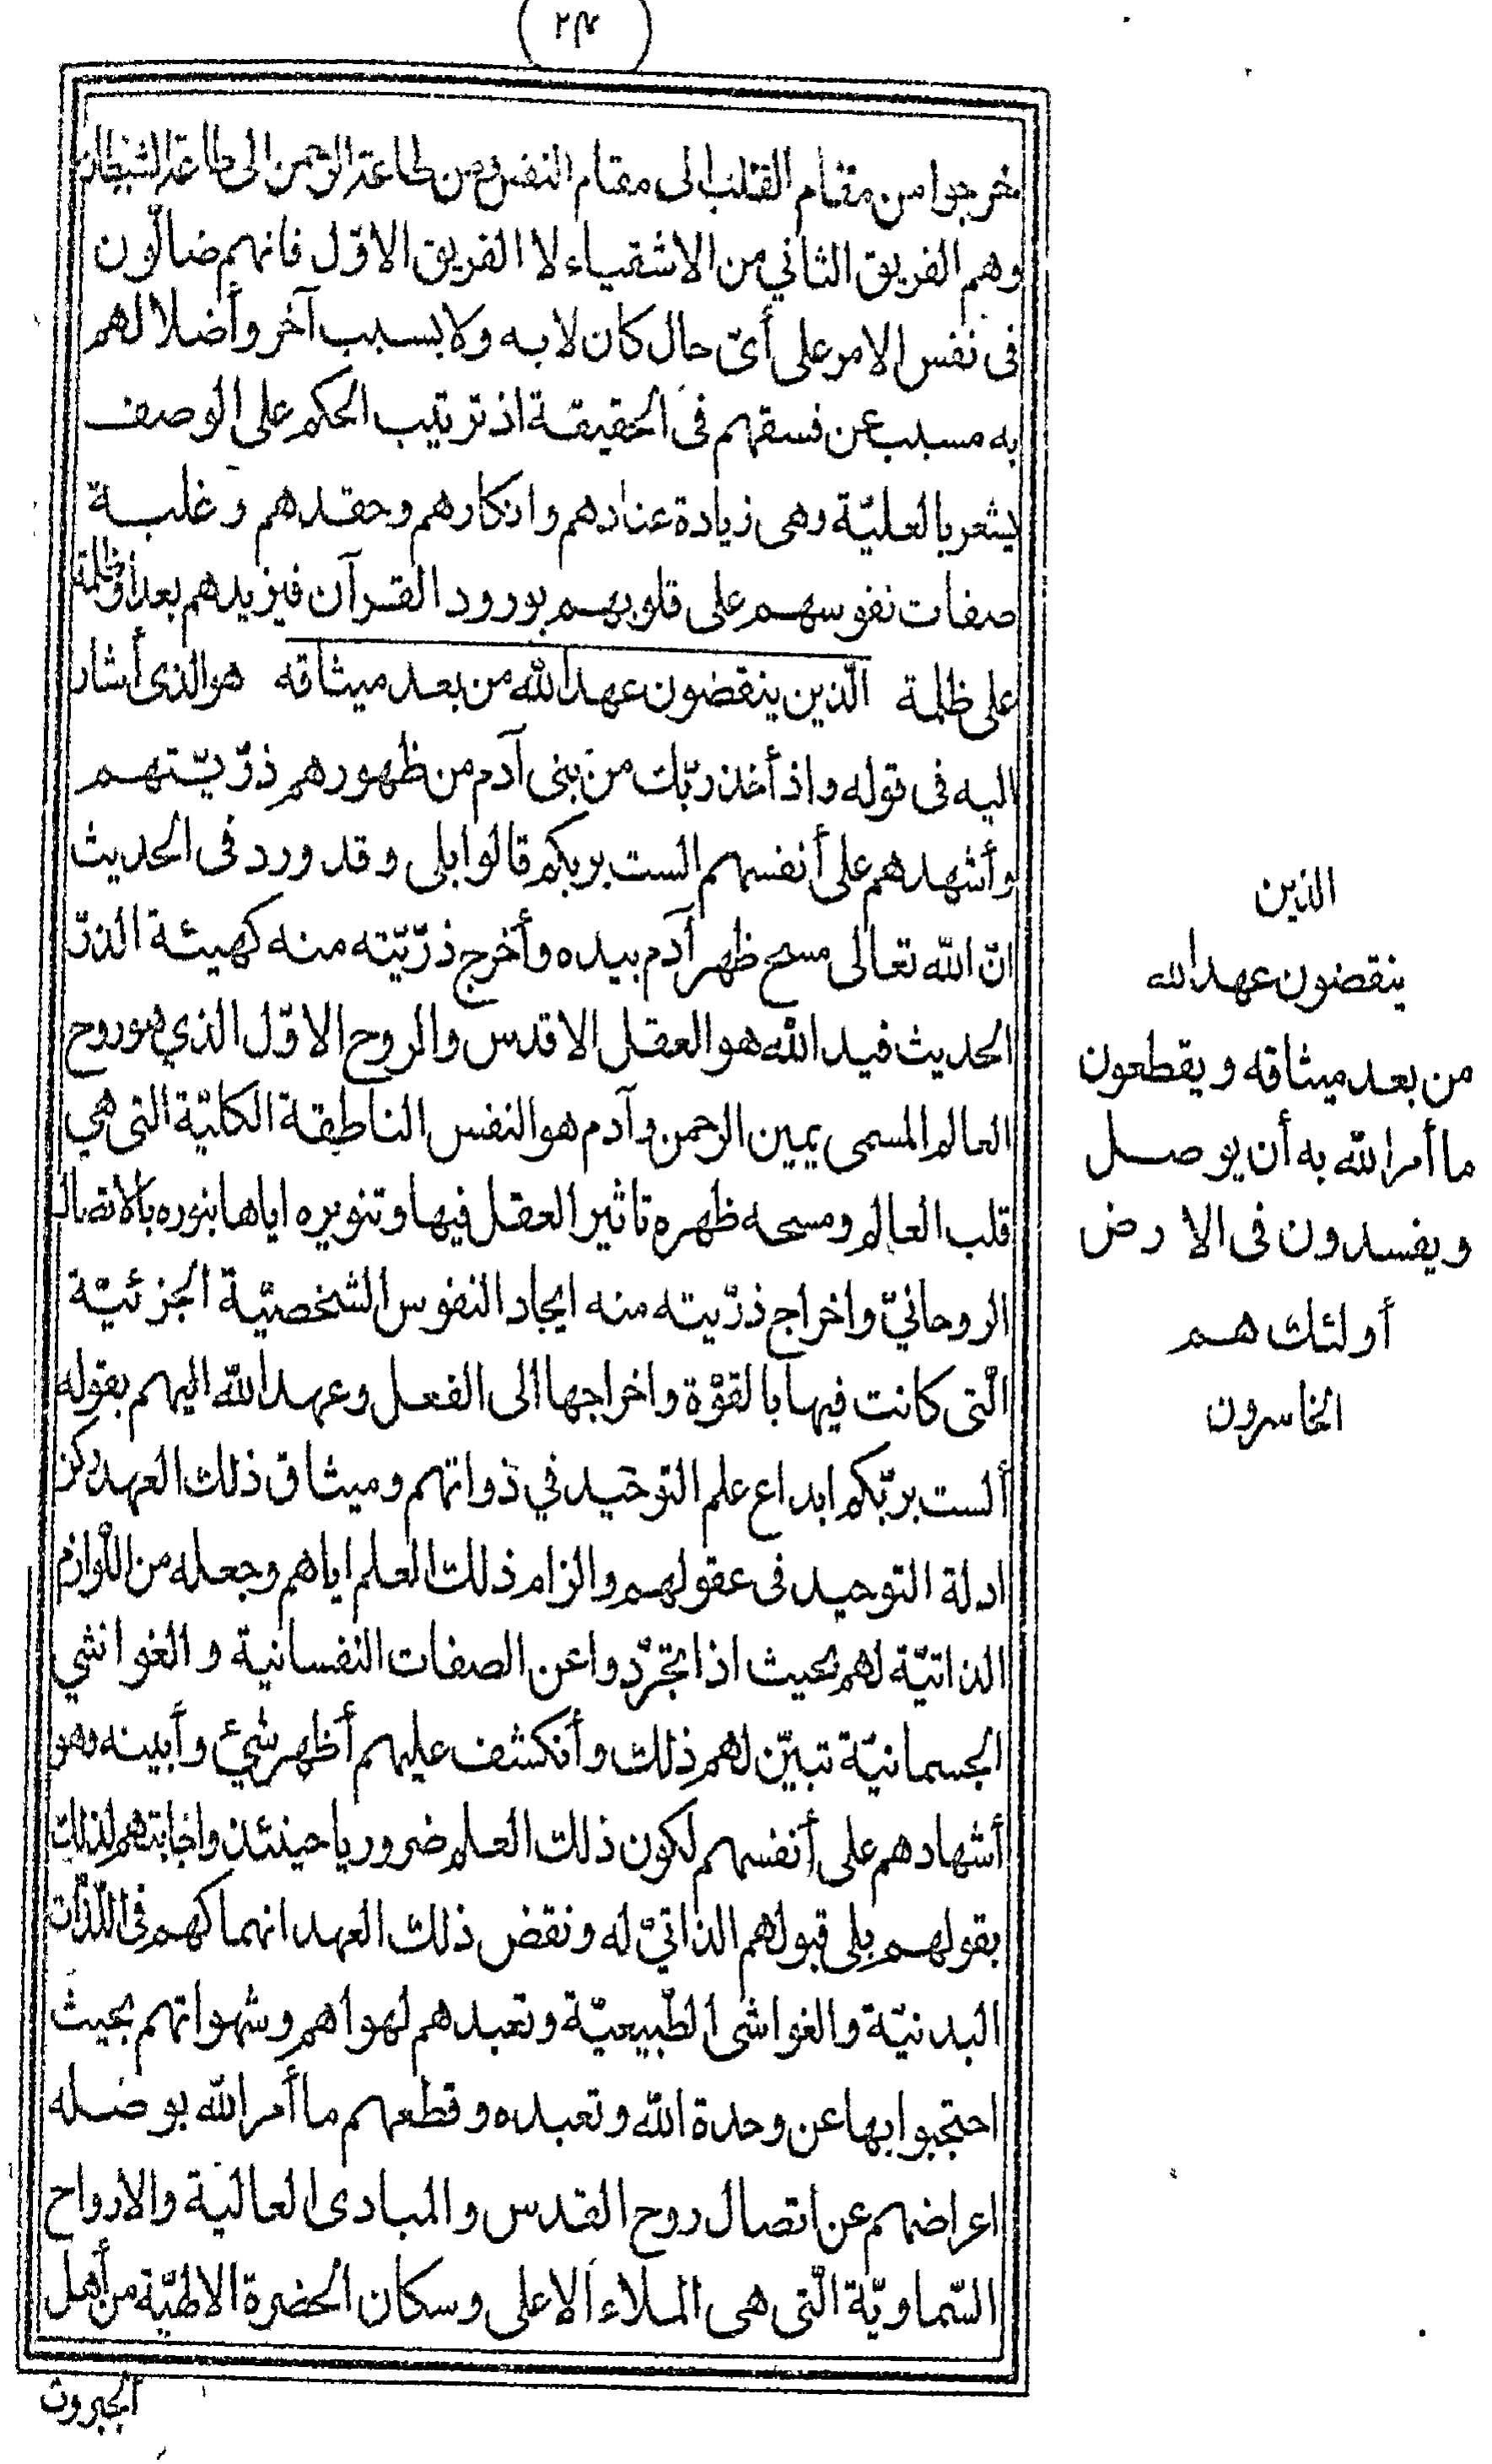 خرجوا من مقام القلب الى مقام النفس ومن طاعة الرحمن الى طاعة الشيطان
وهم الفريق الثاني من الاشقياء لا الفريق الاوّل فانهم ضالّون
فى نفس الامر على أىّ حال كان لا به ولا بسبب آخر وأضلالهم
به مسبب عن فسقهم فى الحقيقة اذ ترتيب الحكم على الوصف
يشعر بالعليّة وهى زيادة عنادهم وانكارهم وحقدهم وغلبة
صفات نفوسهم على قلوبهم بورود القرآن فيزيدهم بعدا وظلمة
على ظلمة الّذين ينقضون عهد الله من بعد ميثاقه هو الذى أشار
اليه فى قوله واذ أخذ ربّك من بنى آدم من ظهورهم ذرّيّتهم
وأشهدهم على أنفسهم الست بربكم قالوا بلى وقد ورد فى الحديث
انّ الله تعالى مسح ظهر آدم بيده وأخرج ذرّيّته منه كهيئة الذرّ
الحديث فيد الله هو العقل الاقدس والروح الاوّل الذي هو روح
العالم المسمى يمين الرحمن وآدم هو النفس الناطقة الكليّة التى هي
قلب العالم ومسحه ظهره تاثير العقل فيها وتنويره اياها بنوره بالاتصال
الروحانيّ واخراج ذرّيته منه ايجاد النفوس الشخصيّة الجزئيّة
الّتى كانت فيها بالقوّة واخراجها الى الفعل وعهد الله اليهم بقوله
ألست بربّكم ابداع علم التوحيد في ذواتهم وميثاق ذلك العهد ركز
ادلة التوحيد فى عقولهم والزام ذلك العلم اياهم وجعله من اللّوازم
الذاتيّة لهم بحيث اذا تجرّدوا عن الصفات النفسانية والغواشي
الجسمانيّة تبيّن لهم ذلك وأنكشف عليهم أظهر شيئ وأبينه وهو
أشهادهم على أنفسهم لكون ذلك العلم ضروريا حينئذ واجابتهم لذلك
بقولهم بلى قبولهم الذاتيّ له ونقض ذلك العهد انهماكهم فى اللّذّات
البدنيّة والغواشى الطّبيعيّة وتعبدهم لهواهم وشهواتهم بحيث
احتجبوا بها عن وحدة الله وتعبده وقطعهم ما أمر الله بوصله
اعراضهم عن اتصال روح القدس والمبادى العالية والارواح
السّماويّة الّتى هى الملاء الاعلى وسكان الحضرة الالهيّة من أهل
الجبروت
الذين
ينقضون عهد الله
من بعد ميثاقه ويقطعون
ما أمر الله به أن يوصل
ويفسدون فى الارض
أولئك هم
الخاسرون